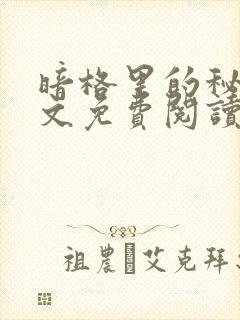 暗格里的秘
文免費閱讀
祖農 艾克拜